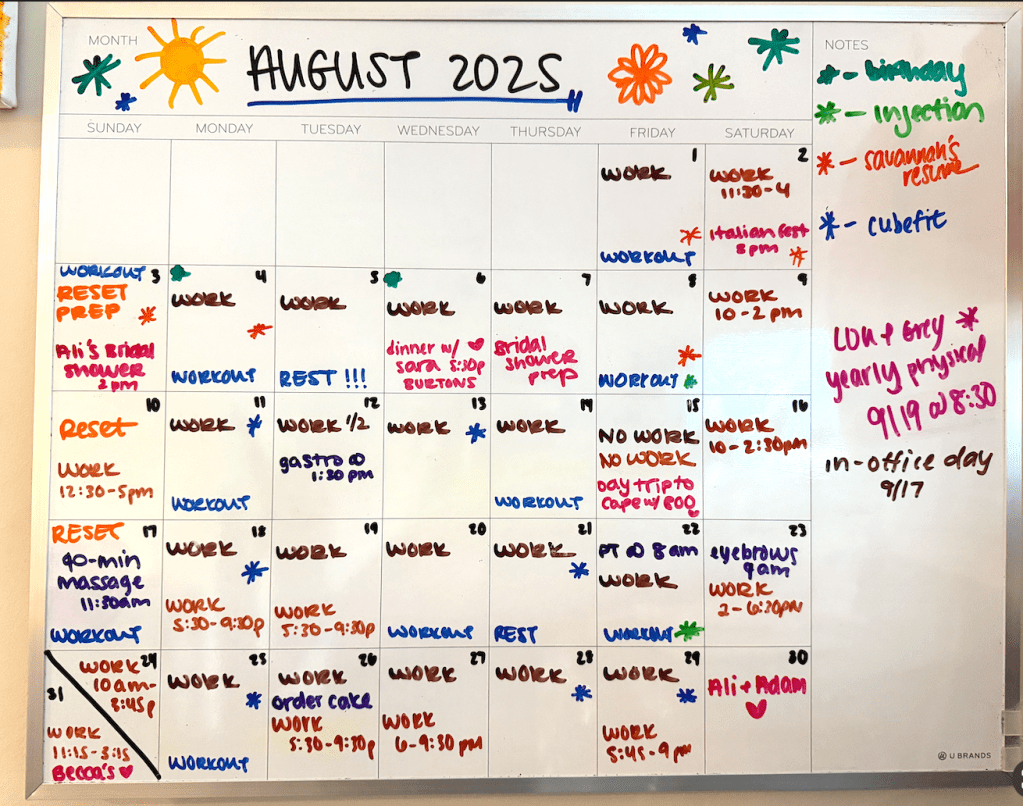 MONTH
AUGUST 2025
SUNDAY MONDAY TUESDAY WEDNESDAY THURSDAY FRIDAY SATURDAY
1
WORK
WORKOUT
2
WORK
11:30-4
Italian Fest
8pm
WORKOUT 3
RESET
PREP
Ali's Bridal
shower
2pm
4
WORK
WORKOUT
5
WORK
REST !!!
6
WORK
dinner w/
sara 5:30p
BURTONS
7
WORK
Bridal
shower
prep
8
WORK
WORKOUT
9
WORK
10-2pm
10
Reset
WORK
12:30-5pm
11
WORK
WORKOUT
12
WORK 1/2
gastro @
1:30 pm
13
WORK
14
WORK
WORKOUT
15
NO WORK
NO WORK
Day trip to
cape w/ BOO
16
WORK
10-2:30pm
RESET 17
90-min
massage
11:30am
WORKOUT
18
WORK
WORK
5:30-9:30p
19
WORK
WORK
5:30-9:30p
20
WORK
WORKOUT
21
WORK
REST
22
PT @ 8am
WORK
WORKOUT
23
eyebrows
9am
WORK
2-6:30PM
24
WORK
10am-
3:45p
31
WORK
11:15-3:15
Becca's
25
WORK
WORKOUT
26
WORK
order cake
WORK
5:30-9:30p
27
WORK
WORK
6-9:30pm
28
WORK
29
WORK
WORK
5:45-9pm
30
Ali + Adam
NOTES
- birthday
- Injection
- savannah's
resume
- cubefit
Lou + Grey
yearly physical
9/19 @ 8:30
in-office day
9/17
U BRANDS